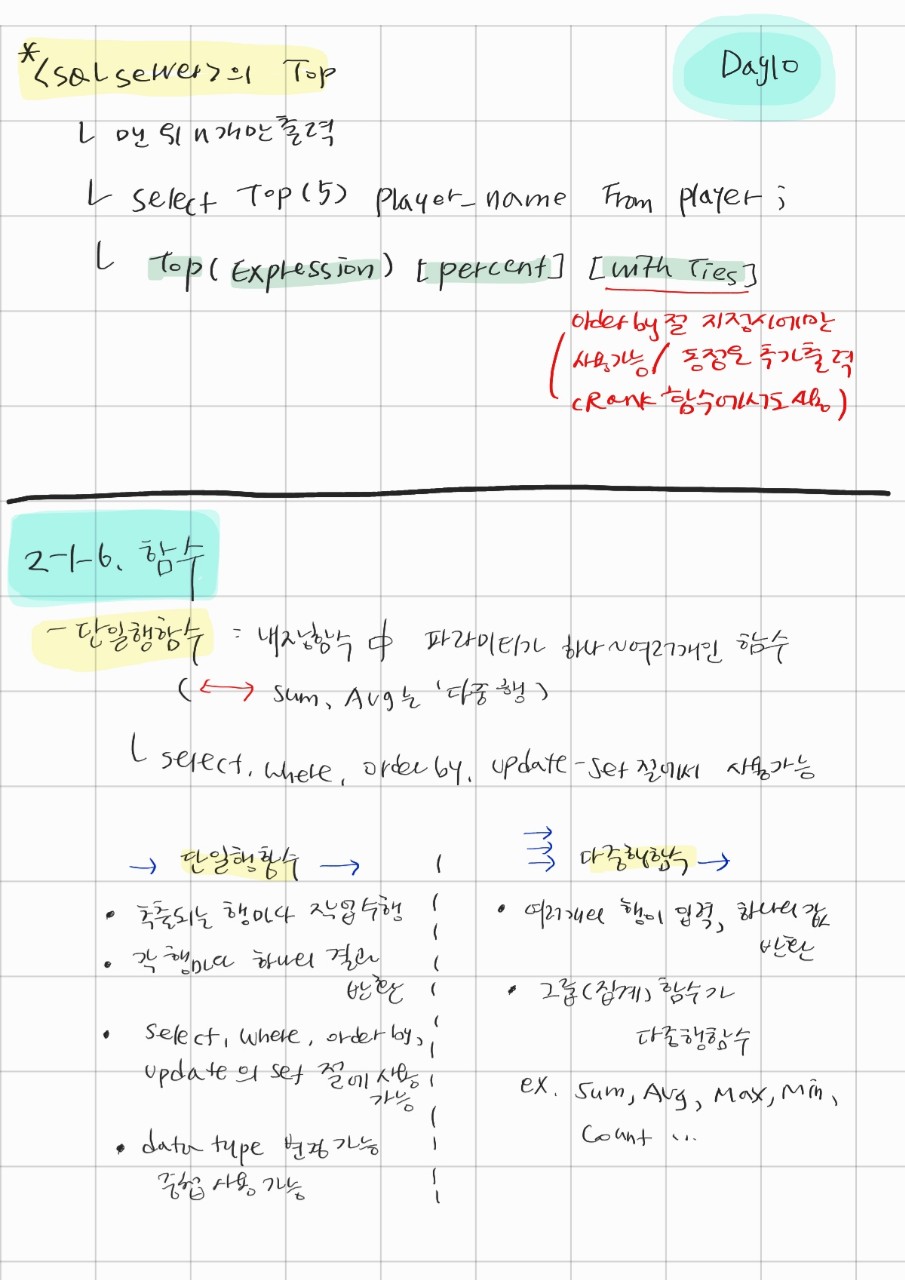 *<SQL server>의 Top
Day10
└ 맨 위 n개만 출력
└ select Top(5) player_name From player;
└ Top(Expression) [percent] [with Ties]
(order by절 지정시에만
사용가능/ 동점은 추가출력
(Rank 함수에서도 사용)
2-1-6. 함수
- 단일행함수 : 내장함수 中 파라미터가 하나~여러개인 함수
(↔ sum, Avg는 '다중행)
└ select, where, order by, update-set 절에서 사용가능
→ 단일행함수 →
• 추출되는 행마다 작업수행
• 각 행마다 하나의 결과
반환
• select, where, order by,
update의 set 절에 사용
가능
• data type 변경가능
중첩 사용가능
다중행함수 →
• 여러개의 행이 입력, 하나의 값
반환
• 그룹(집계) 함수가
다중행함수
ex. Sum, Avg, Max, Min,
Count ...